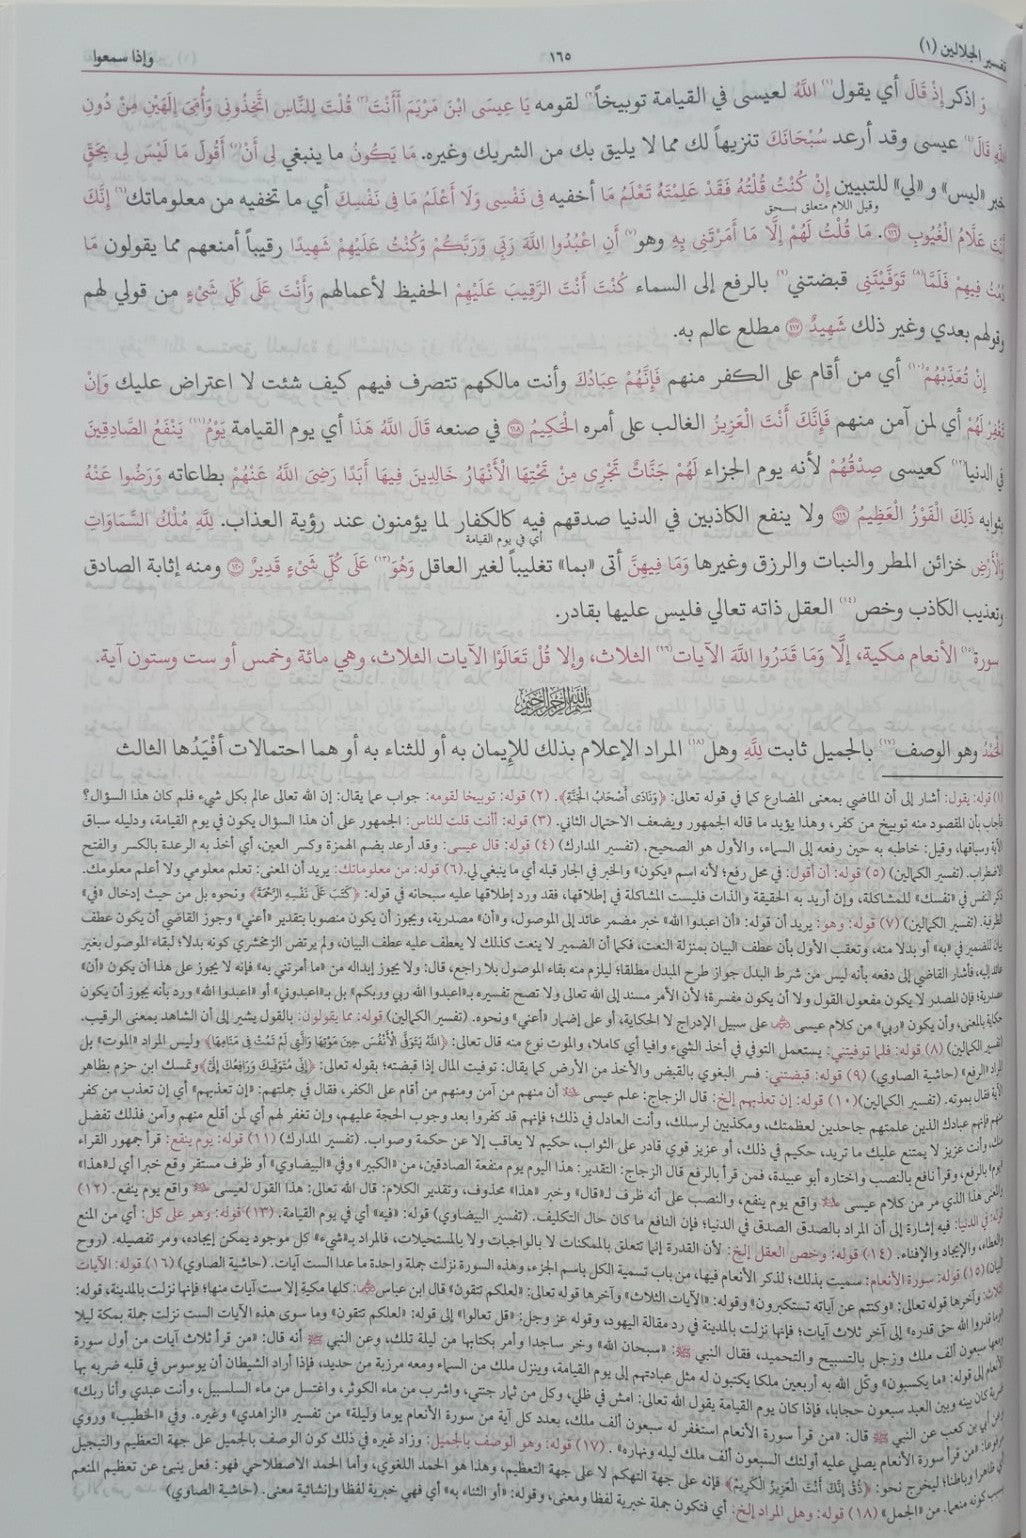 تفسير الجلالين (١) ١٦٥ وإذا سمعوا
وَ اذكر إِذْ قَالَ أي يقول(١) اللَّهُ لعيسى في القيامة توبيخاً(٢) لقومه يَا عِيسَى ابْنَ مَرْيَمَ أَأَنْتَ(٣) قُلْتَ لِلنَّاسِ اتَّخِذُونِى وَأُمِّىَ إِلَهَيْنِ مِنْ دُونِ
اللَّهِ قَالَ(٤) عيسى وقد أرعد سُبْحَانَكَ تنزيهاً لك مما لا يليق بك من الشريك وغيره. مَا يَكُونُ ما ينبغي لِى أَنْ(٥) أَقُولَ مَا لَيْسَ لِى بِحَقٍّ
خبر «ليس» و «لي» للتبيين إِنْ كُنْتُ قُلْتُهُ فَقَدْ عَلِمْتَهُ تَعْلَمُ مَا أخفيه فِى نَفْسِى وَلَا أَعْلَمُ مَا فِى نَفْسِكَ أي ما تخفيه من معلوماتك(٦) إِنَّكَ
وقيل اللام متعلق بـحق
أَنْتَ عَلَّامُ الْغُيُوبِ ١١٦. مَا قُلْتُ لَهُمْ إِلَّا مَا أَمَرْتَنِى بِهِ وهو(٧) أَنِ اعْبُدُوا اللَّهَ رَبِّى وَرَبَّكُمْ وَكُنْتُ عَلَيْهِمْ شَهِيدًا رقيباً أمنعهم مما يقولون مَا
دُمْتُ فِيهِمْ فَلَمَّا(٨) تَوَفَّيْتَنِى قبضتني(٩) بالرفع إلى السماء كُنْتَ أَنْتَ الرَّقِيبَ عَلَيْهِمْ الحفيظ لأعمالهم وَأَنْتَ عَلَى كُلِّ شَىْءٍ من قولي لهم
وقولهم بعدي وغير ذلك شَهِيدٌ ١١٧ مطلع عالم به.
إِنْ تُعَذِّبْهُمْ(١٠) أي من أقام على الكفر منهم فَإِنَّهُمْ عِبَادُكَ وأنت مالكهم تتصرف فيهم كيف شئت لا اعتراض عليك وَإِنْ
تَغْفِرْ لَهُمْ أي لمن آمن منهم فَإِنَّكَ أَنْتَ الْعَزِيزُ الغالب على أمره الْحَكِيمُ ١١٨ في صنعه قَالَ اللَّهُ هَذَا أي يوم القيامة يَوْمُ(١١) يَنْفَعُ الصَّادِقِينَ
في الدنيا(١٢) كعيسى صِدْقُهُمْ لأنه يوم الجزاء لَهُمْ جَنَّاتٌ تَجْرِى مِنْ تَحْتِهَا الْأَنْهَارُ خَالِدِينَ فِيهَا أَبَدًا رَضِىَ اللَّهُ عَنْهُمْ بطاعاته وَرَضُوا عَنْهُ
بثوابه ذَلِكَ الْفَوْزُ الْعَظِيمُ ١١٩ ولا ينفع الكاذبين في الدنيا صدقهم فيه كالكفار لما يؤمنون عند رؤية العذاب. لِلَّهِ مُلْكُ السَّمَاوَاتِ
أي في يوم القيامة
وَالْأَرْضِ خزائن المطر والنبات والرزق وغيرها وَمَا فِيهِنَّ أتى «بما» تغليباً لغير العاقل وَهُوَ(١٣) عَلَى كُلِّ شَىْءٍ قَدِيرٌ ١٢٠ ومنه إثابة الصادق
وتعذيب الكاذب وخص(١٤) العقل ذاته تعالي فليس عليها بقادر.
سورة(١٥) الأنعام مكية، إلَّا وَمَا قَدَرُوا اللَّهَ الآيات(١٦) الثلاث، وإلا قُلْ تَعَالَوْا الآيات الثلاث، وهي مائة وخمس أو ست وستون آية.
بسم الله الرحمن الرحيم
الْحَمْدُ وهو الوصف(١٧) بالجميل ثابت لِلَّهِ وهل(١٨) المراد الإعلام بذلك للإيمان به أو للثناء به أو هما احتمالات أفْيَدُها الثالث
(١) قوله: يقول: أشار إلى أن الماضي بمعنى المضارع كما في قوله تعالى: ﴿وَنَادَى أَصْحَابُ الْجَنَّةِ﴾. (٢) قوله: توبيخا لقومه: جواب عما يقال: إن الله تعالى عالم بكل شيء فلم كان هذا السؤال؟
فأجاب بأن المقصود منه توبيخ من كفر، وهذا يؤيد ما قاله الجمهور ويضعف الاحتمال الثاني. (٣) قوله: أأنت قلت للناس: الجمهور على أن هذا السؤال يكون في يوم القيامة، ودليله سباق
الآية وسياقها، وقيل: خاطبه به حين رفعه إلى السماء، والأول هو الصحيح. (تفسير المدارك) (٤) قوله: قال عيسى: وقد أرعد بضم الهمزة وكسر العين، أي أخذ به الرعدة بالكسر والفتح
الاضطراب. (تفسير الكمالين) (٥) قوله: أن أقول: في محل رفع؛ لأنه اسم «يكون» والخبر في الجار قبله أي ما ينبغي لي. (٦) قوله: من معلوماتك: يريد أن المعنى: تعلم معلومي ولا أعلم معلومك.
ذكر النفس في «نفسك» للمشاكلة، وإن أريد به الحقيقة والذات فليست المشاكلة في إطلاقها، فقد ورد إطلاقها عليه سبحانه في قوله: ﴿كَتَبَ عَلَى نَفْسِهِ الرَّحْمَةَ﴾ ونحوه بل من حيث إدخال «في»
الظرفية. (تفسير الكمالين) (٧) قوله: وهو: يريد أن قوله: «أن اعبدوا الله» خبر مضمر عائد إلى الموصول، و«أن» مصدرية، ويجوز أن يكون منصوبا بتقدير «أعني» وجوز القاضي أن يكون عطف
بيان للضمير في «به» أو بدلا منه، وتعقب الأول بأن عطف البيان بمنزلة النعت، فكما أن الضمير لا ينعت كذلك لا يعطف عليه عطف البيان، ولم يرتض الزمخشري كونه بدلا؛ لبقاء الموصول بغير
عائد إليه، فأشار القاضي إلى دفعه بأنه ليس من شرط البدل جواز طرح المبدل مطلقا؛ ليلزم منه بقاء الموصول بلا راجع، قال: ولا يجوز إبداله من «ما أمرتني به» فإنه لا يجوز على هذا أن يكون «أن»
مصدرية؛ فإن المصدر لا يكون مفعول القول ولا أن يكون مفسرة؛ لأن الأمر مسند إلى الله تعالى ولا تصح تفسيره بـ«اعبدوا الله ربي وربكم» بل بـ«اعبدوني» أو «اعبدوا الله» ورد بأنه يجوز أن يكون
حكاية بالمعنى، وأن يكون «ربي» من كلام عيسى على سبيل الإدراج لا الحكاية، أو على إضمار «أعني» ونحوه. (تفسير الكمالين) قوله: مما يقولون: بالقول يشير إلى أن الشاهد بمعنى الرقيب.
(تفسير الكمالين) (٨) قوله: فلما توفيتني: يستعمل التوفي في أخذ الشيء وافيا أي كاملا، والموت نوع منه قال تعالى: ﴿اللَّهُ يَتَوَفَّى الْأَنْفُسَ حِينَ مَوْتِهَا وَالَّتِي لَمْ تَمُتْ فِي مَنَامِهَا﴾ وليس المراد «الموت» بل
المراد «الرفع» (حاشية الصاوي) (٩) قوله: قبضتني: فسر البغوي بالقبض والأخذ من الأرض كما يقال: توفيت المال إذا قبضته؛ بقوله تعالى: ﴿إِنِّي مُتَوَفِّيكَ وَرَافِعُكَ إِلَيَّ﴾ وتمسك ابن حزم بظاهر
الآية فقال بموته. (تفسير الكمالين) (١٠) قوله: إن تعذبهم إلخ: قال الزجاج: علم عيسى أن منهم من آمن ومنهم من أقام على الكفر، فقال في جملتهم: «إن تعذبهم» أي إن تعذب من كفر
منهم فإنهم عبادك الذين علمتهم جاحدين لعظمتك، ومكذبين لرسلك، وأنت العادل في ذلك؛ فإنهم قد كفروا بعد وجوب الحجة عليهم، وإن تغفر لهم أي لمن أقلع منهم وآمن فذلك تفضل
منك، وأنت عزيز لا يمتنع عليك ما تريد، حكيم في ذلك، أو عزيز قوي قادر على الثواب، حكيم لا يعاقب إلا عن حكمة وصواب. (تفسير المدارك) (١١) قوله: يوم ينفع: قرأ جمهور القراء
«يوم» بالرفع، وقرأ نافع بالنصب واختاره أبو عبيدة، فمن قرأ بالرفع قال الزجاج: التقدير: هذا اليوم يوم منفعة الصادقين، من «الكبير» وفي «البيضاوي» أو ظرف مستقر وقع خبرا أي لـ«هذا»
والمعنى هذا الذي مر من كلام عيسى واقع يوم ينفع، والنصب على أنه ظرف لـ«قال» وخبر «هذا» محذوف، وتقدير الكلام: قال الله تعالى: هذا القول لعيسى واقع يوم ينفع. (١٢)
قوله: في الدنيا: فيه إشارة إلى أن المراد بالصدق الصدق في الدنيا؛ فإن النافع ما كان حال التكليف. (تفسير البيضاوي) قوله: «فيه» أي في يوم القيامة. (١٣) قوله: وهو على كل: أي من المنع
والعطاء، والإيجاد والإفناء. (١٤) قوله: وخص العقل إلخ: لأن القدرة إنما تتعلق بالممكنات لا بالواجبات ولا بالمستحيلات، فالمراد بـ«شيء» كل موجود يمكن إيجاده، ومر تفصيله. (روح
البيان) (١٥) قوله: سورة الأنعام: سميت بذلك؛ لذكر الأنعام فيها، من باب تسمية الكل باسم الجزء، وهذه السورة نزلت جملة واحدة ما عدا الست آيات. (حاشية الصاوي) (١٦) قوله: الآيات
الثلاث: وآخرها قوله تعالى: «وكنتم عن آياته تستكبرون» وقوله: «الآيات الثلاث» وآخرها قوله تعالى: «لعلكم تتقون» قال ابن عباس: كلها مكية إلا ست آيات منها؛ فإنها نزلت بالمدينة، قوله:
«وما قدروا الله حق قدره» إلى آخر ثلاث آيات؛ فإنها نزلت بالمدينة في رد مقالة اليهود، وقوله عز وجل: «قل تعالوا» إلى قوله: «لعلكم تتقون» وما سوى هذه الآيات الست نزلت جملة بمكة ليلا
ومعها سبعون ألف ملك وزجل بالتسبيح والتحميد، فقال النبي ﷺ: «سبحان الله» وخر ساجدا وأمر بكتابها من ليلة تلك، وعن النبي ﷺ أنه قال: «من قرأ ثلاث آيات من أول سورة
الأنعام إلى قوله: «ما يكسبون» وكّل الله به أربعين ملكا يكتبون له مثل عبادتهم إلى يوم القيامة، وينزل ملك من السماء ومعه مرزبة من حديد، فإذا أراد الشيطان أن يوسوس في قلبه ضربه بها
ضربة كان بينه وبين العبد سبعون حجابا، فإذا كان يوم القيامة يقول الله تعالى: امش في ظلي، وكل من ثمار جنتي، واشرب من ماء الكوثر، واغتسل من ماء السلسبيل، وأنت عبدي وأنا ربك»
وعن أبي بن كعب عن النبي ﷺ قال: «من قرأ سورة الأنعام استغفر له سبعون ألف ملك، بعدد كل آية من سورة الأنعام يوما وليلة» من تفسير «الزاهدي» وغيره. وفي «الخطيب» وروي
مرفوعا: «من قرأ سورة الأنعام يصلي عليه أولئك السبعون ألف ملك ليله ونهاره». (١٧) قوله: وهو الوصف بالجميل: وزاد غيره في ذلك كون الوصف بالجميل على جهة التعظيم والتبجيل
أي ظاهرا وباطنا؛ ليخرج نحو: ﴿ذُقْ إِنَّكَ أَنْتَ الْعَزِيزُ الْكَرِيمُ﴾ فإنه على جهة التهكم لا على جهة التعظيم، وهذا هو الحمد اللغوي، وأما الحمد الاصطلاحي فهو: فعل ينبئ عن تعظيم المنعم
بسبب كونه منعما. من «الجمل» (١٨) قوله: وهل المراد إلخ: أي فتكون جملة خبرية لفظا ومعنى، وقوله: «أو الثناء به» أي فهي خبرية لفظا وإنشائية معنى. (حاشية الصاوي)